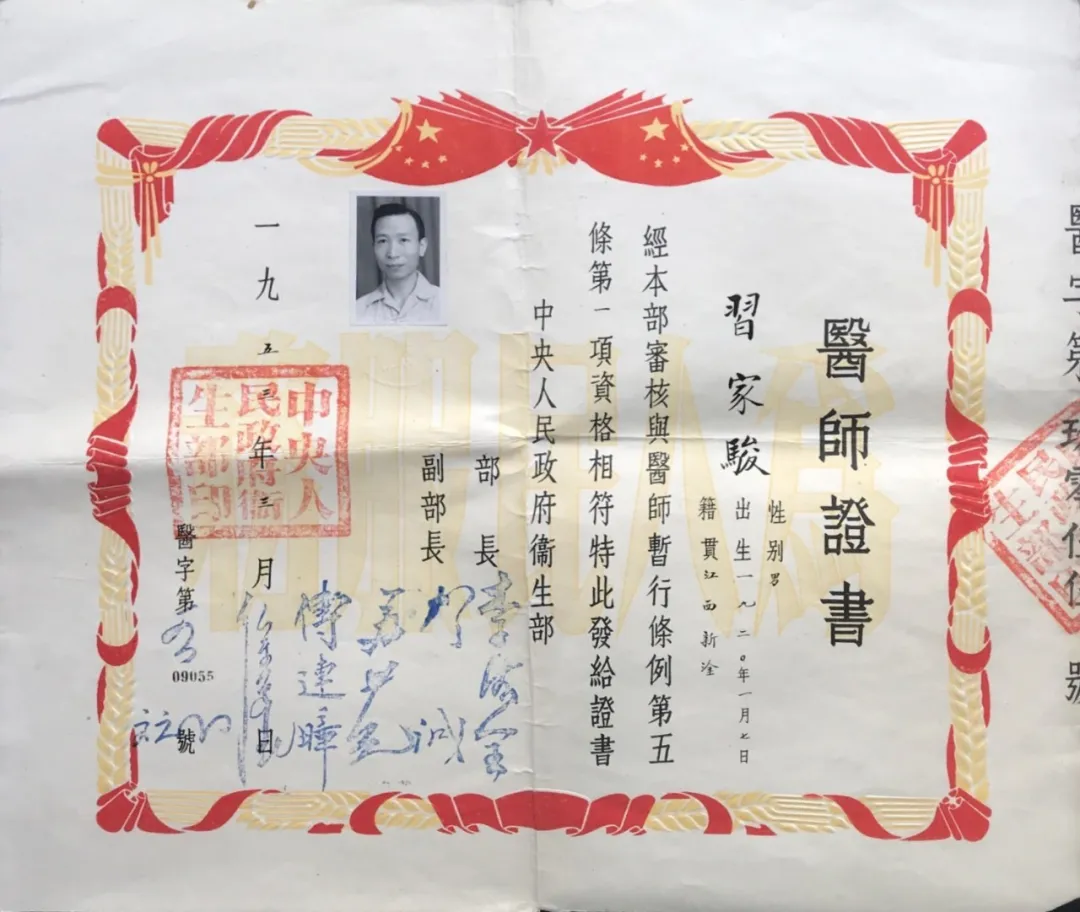 醫師證書
習家駿
性別男
出生一九二〇年一月七日
籍貫江西新淦
經本部審核與醫師暫行條例第五
條第一項資格相符特此發給證書
中央人民政府衞生部
部長
副部長
一九五三年三月日
中央人
民政府衞
生部印
醫字第
09055
號
醫字第
號